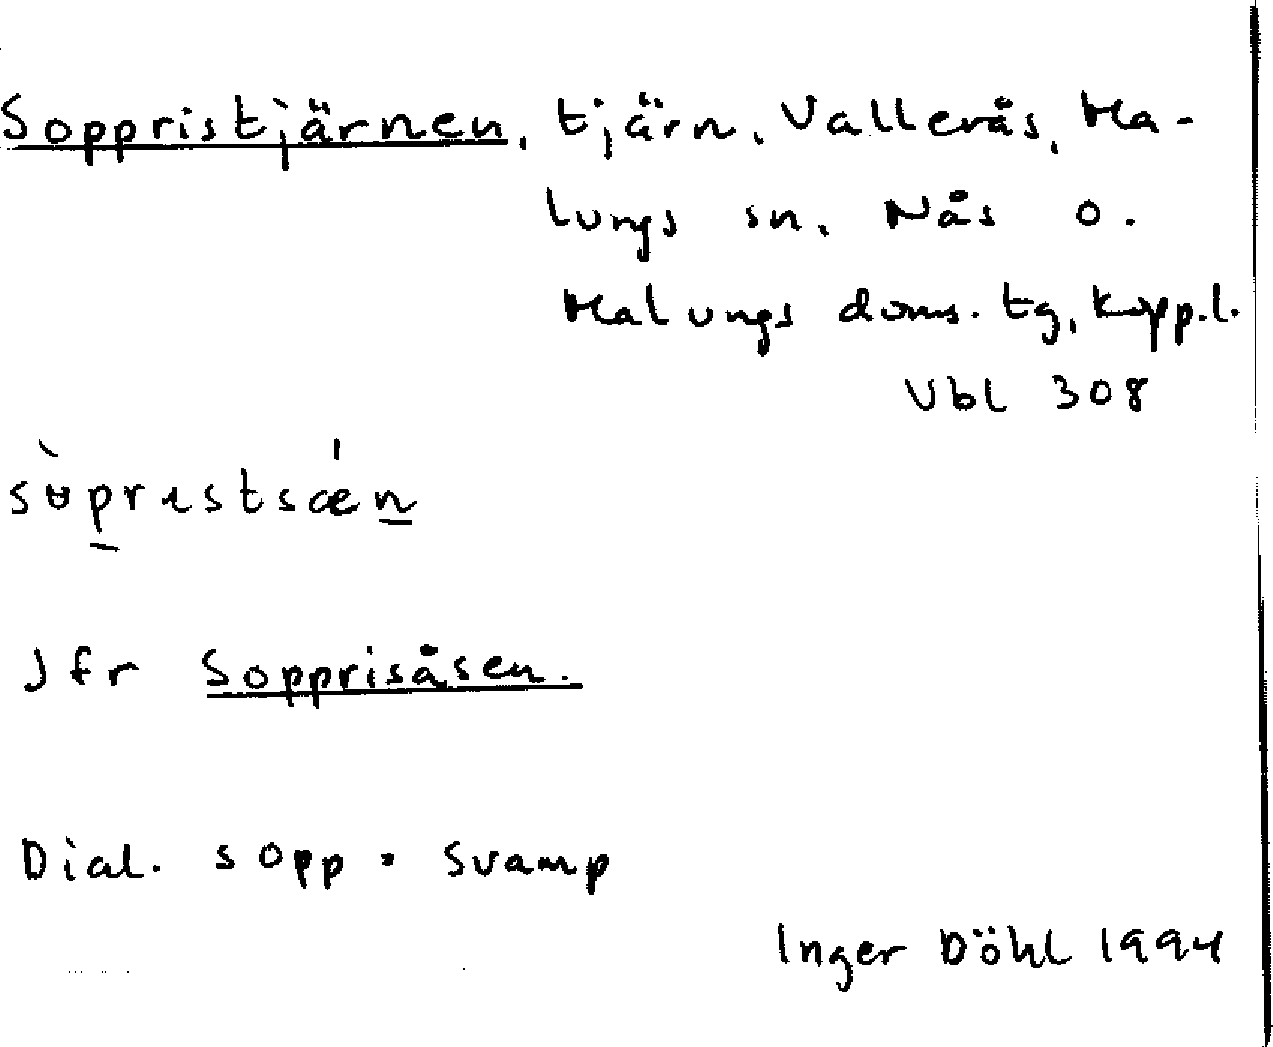 Soppristjärnen, tjärn, Vallerås, Ma-
lungs sn, Nås o.
Malungs doms. tg, Kopp.l.
Vbl 308
Jfr Sopprisåsen.
Dial. sopp = svamp
Inger Döhl 1994